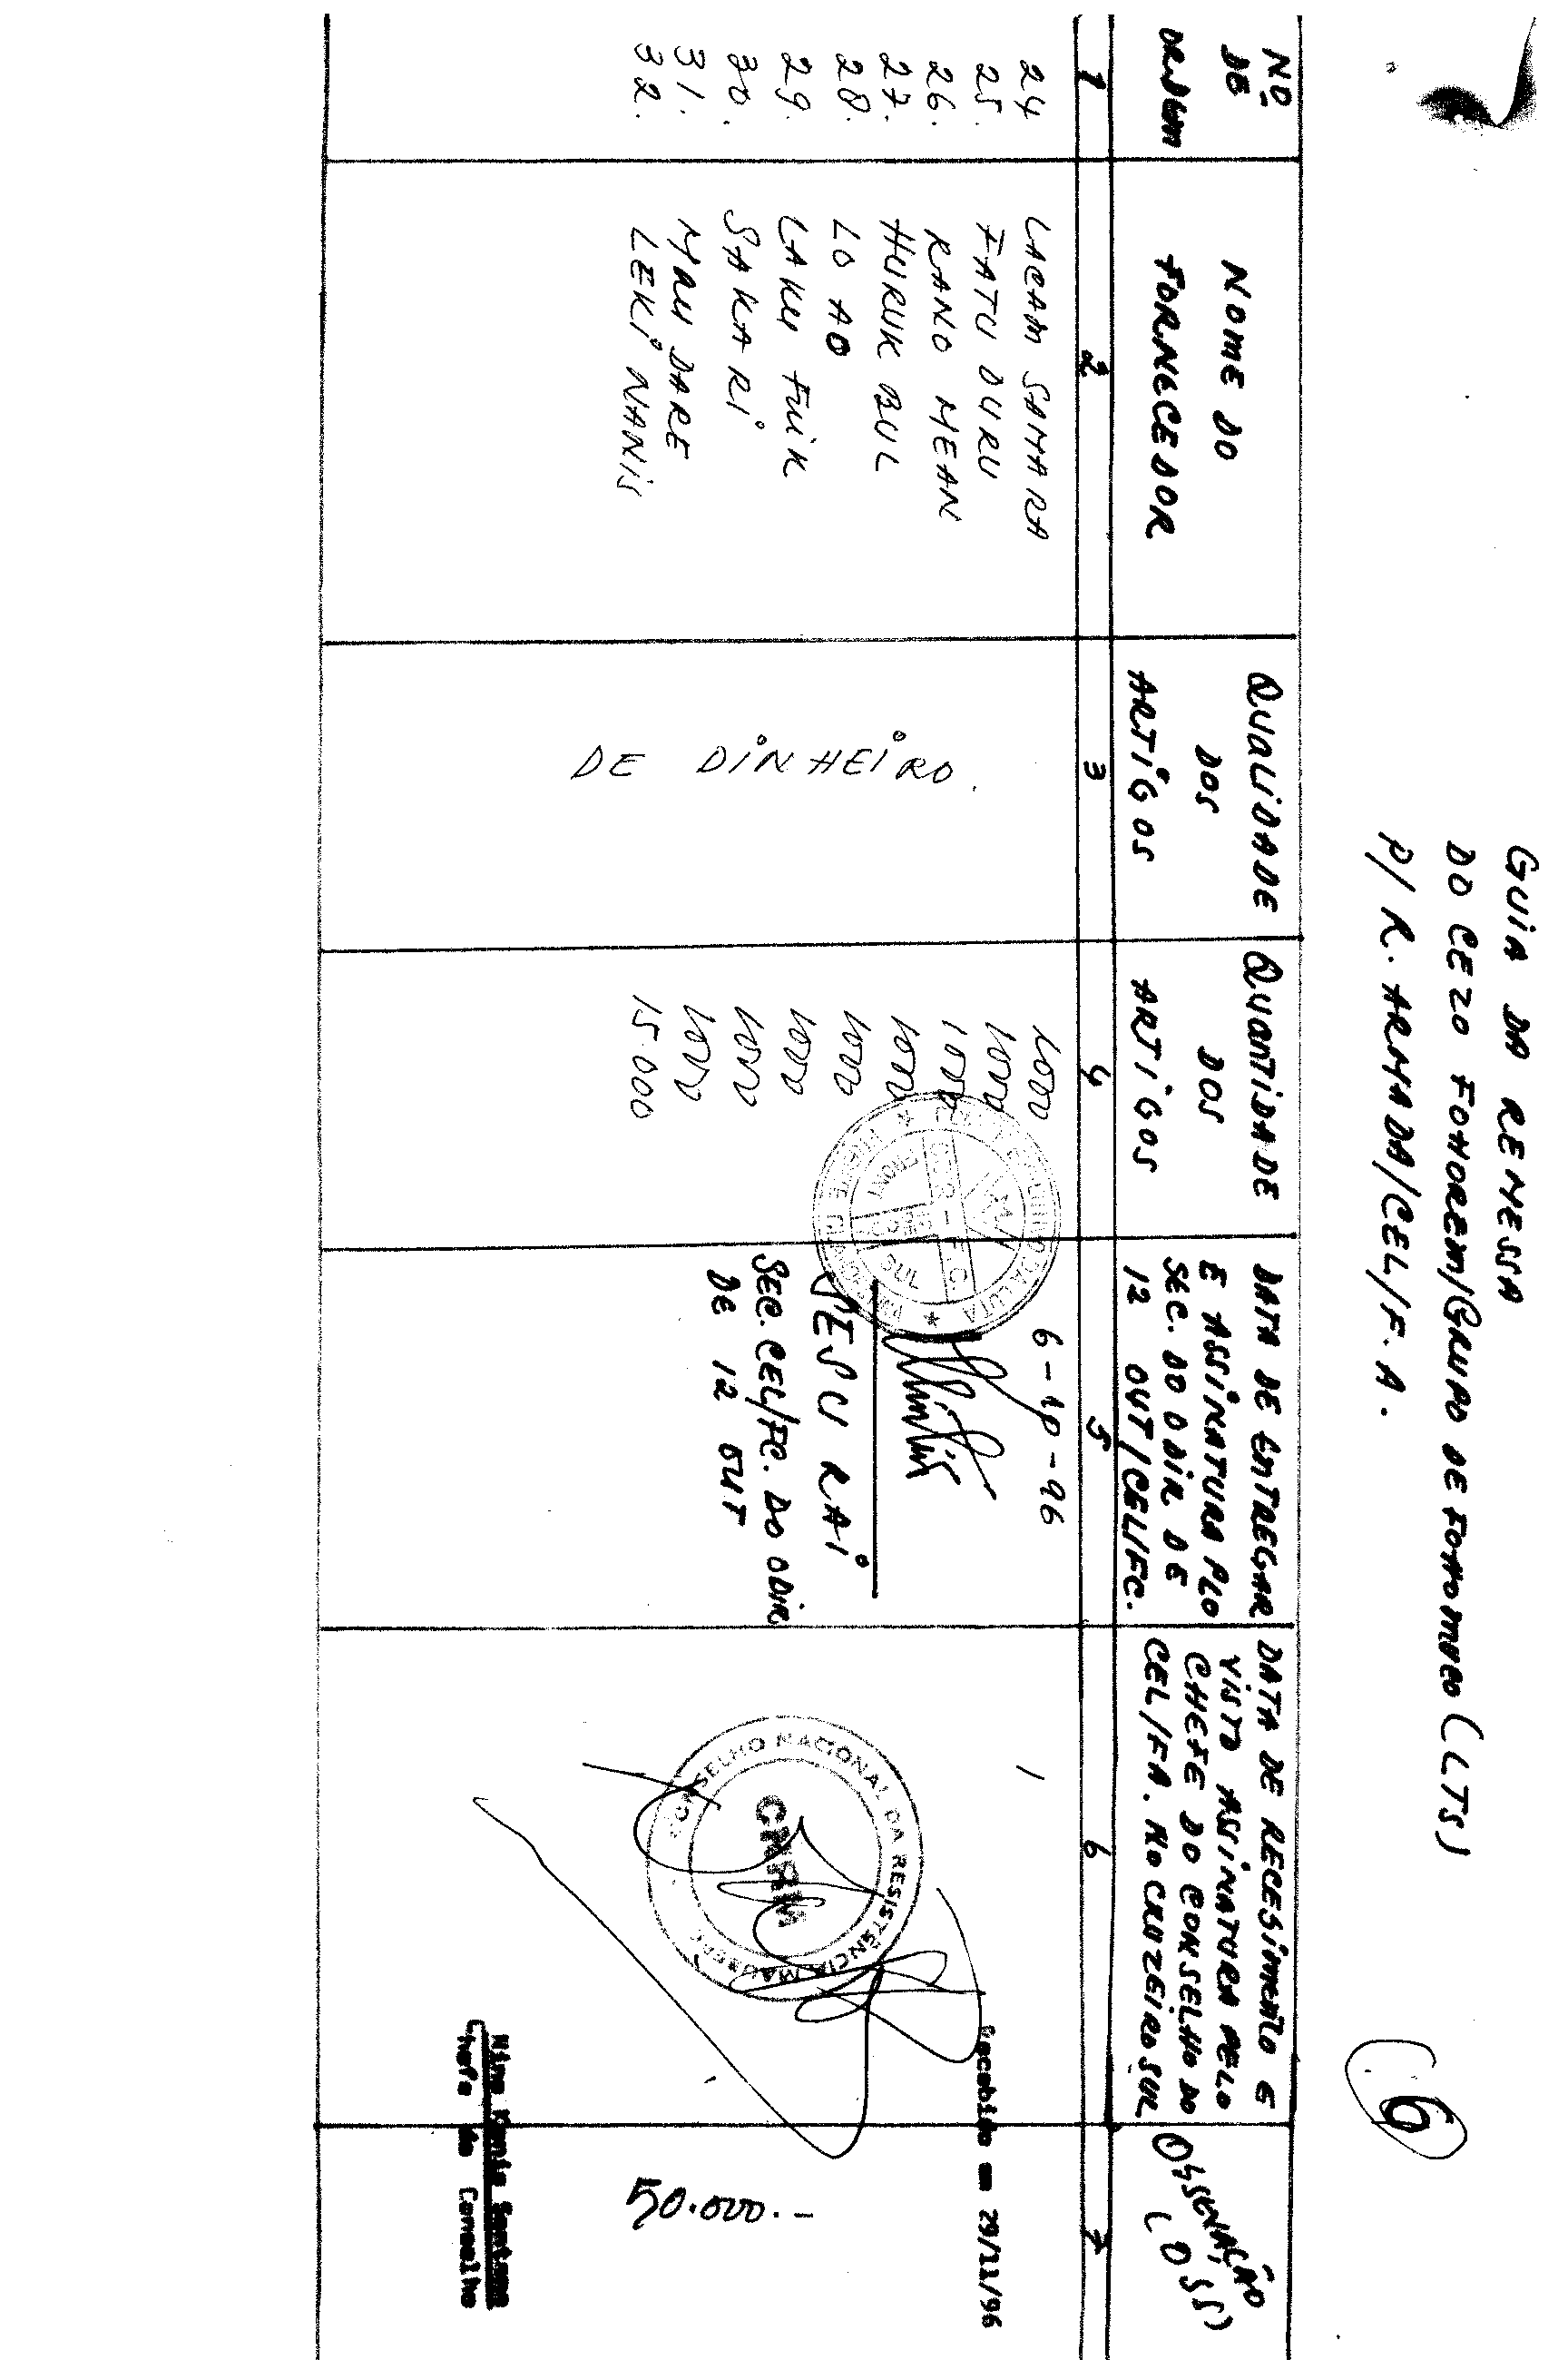 GUIA DA REMESSA
DO CEZO FOHOREM/GRUPO DE FOHOMUCO (LTS)
P/ R. ARMADA/CEL/F.A.
6
Nº DE ORDEM
NOME DO FORNECEDOR
QUALIDADE DOS ARTIGOS
QUANTIDADE DOS ARTIGOS
DATA DE ENTREGAR E ASSINATURA PLO SEC. DO ODIR DE 12 OUT/CEL/FC.
DATA DE RECEBIMENTO E VISTO ASSINATURA PELO CHEFE DO CONSELHO DO CEL/FA. NO CRUZEIRO SUL
OBSERVAÇÃO
1 2 3 4 5 6 7
24 LACAM SAMARA 1000
25. FATU DURU 1000
26. RANO MEAN 1000
27. HURUK BUL 1000
28. LO AO 1000
29. LAKU FUIK 1000
30. SAKARI 1000
31. MAU DARE 1000
32. LEKI NANIS 15.000
DE DINHEIRO.
6-10-96
SESU RAI
SEC. CEL/FC. DO ODIR
DE 12 OUT
CONSELHO NACIONAL DA RESISTÊNCIA MAUBERE
CNRM
Recebido em 29/11/96
50.000.-
Nino Konis Santana
Chefe do Conselho